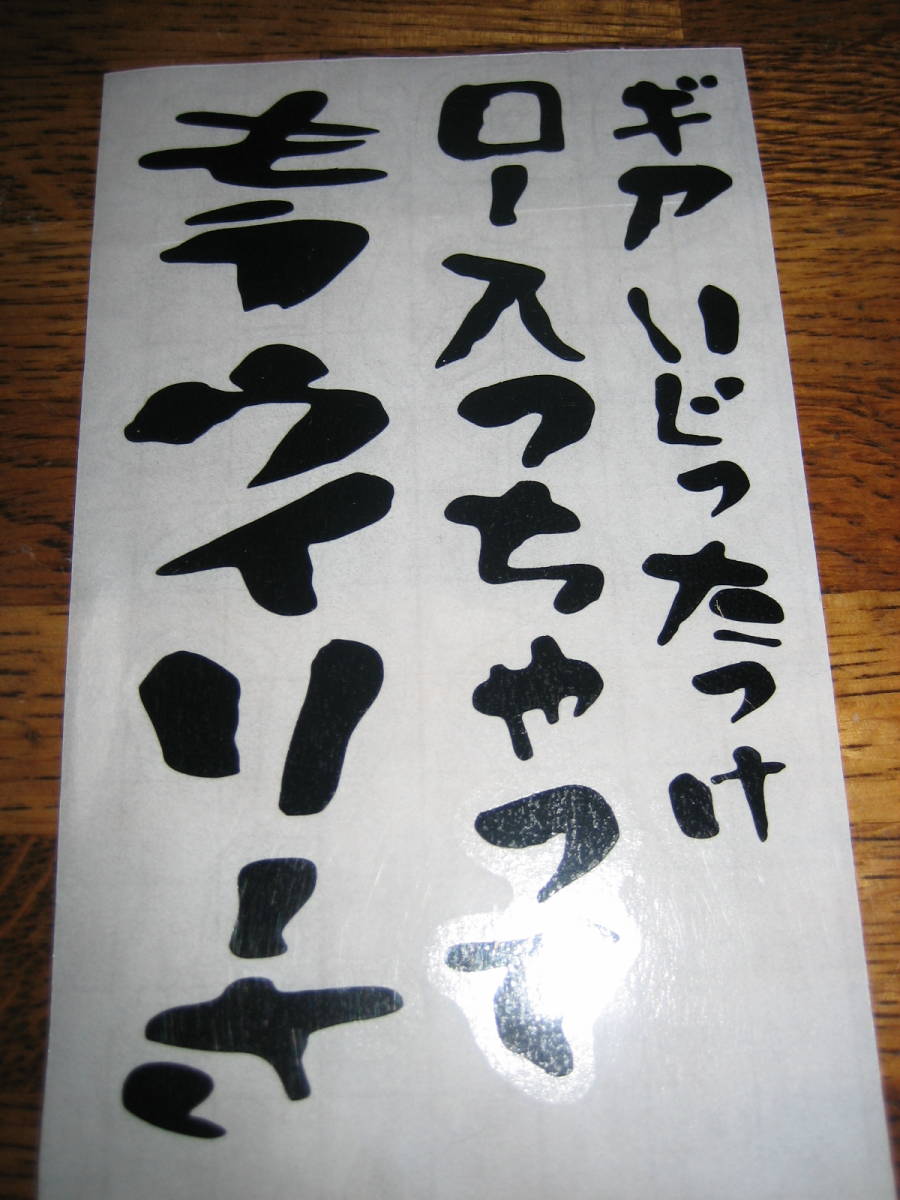 ギアいじったっけ
ロー入っちゃって
もうウイリーさ